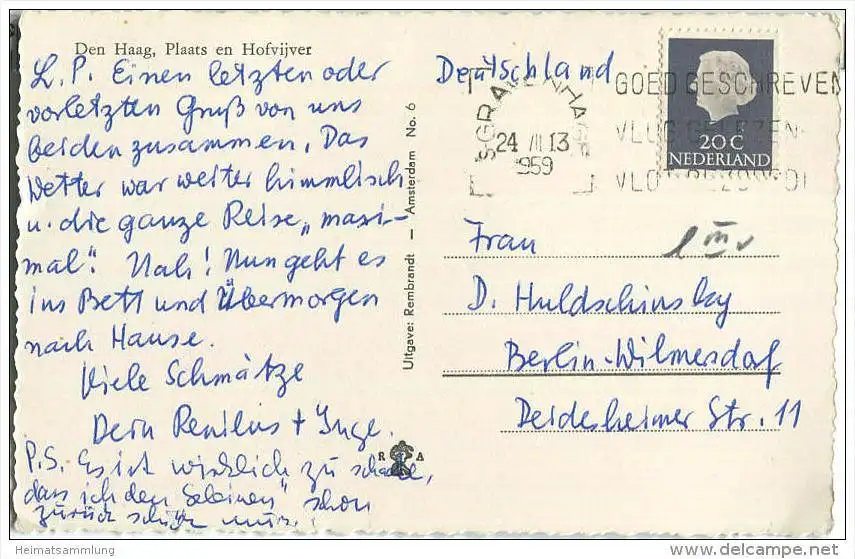 Den Haag, Plaats en Hofvijver
L. P. Einen letzten oder
vorletzten Gruß von uns
beiden zusammen. Das
Wetter war weiter himmlisch
u. die ganze Reise „maxi-
mal“. Nah! Nun geht es
ins Bett und Übermorgen
nach Hause.
Viele Schmätze
Dein + Inge.
P.S. Es ist wirklich zu schade,
dass ich den schon
zurück
Uitgave: Rembrandt — Amsterdam No. 6
R A
Deutschland
'S-GRAVENHAGE
24 13
1959
GOED GESCHREVEN
VLUG GELEZEN
VLOT BEZORGD!
20 C
NEDERLAND
Frau
D. Huldschinsky
Berlin-Wilmersdorf
Deidesheimer Str. 11
Heimatsammlung
www.delcampe.net